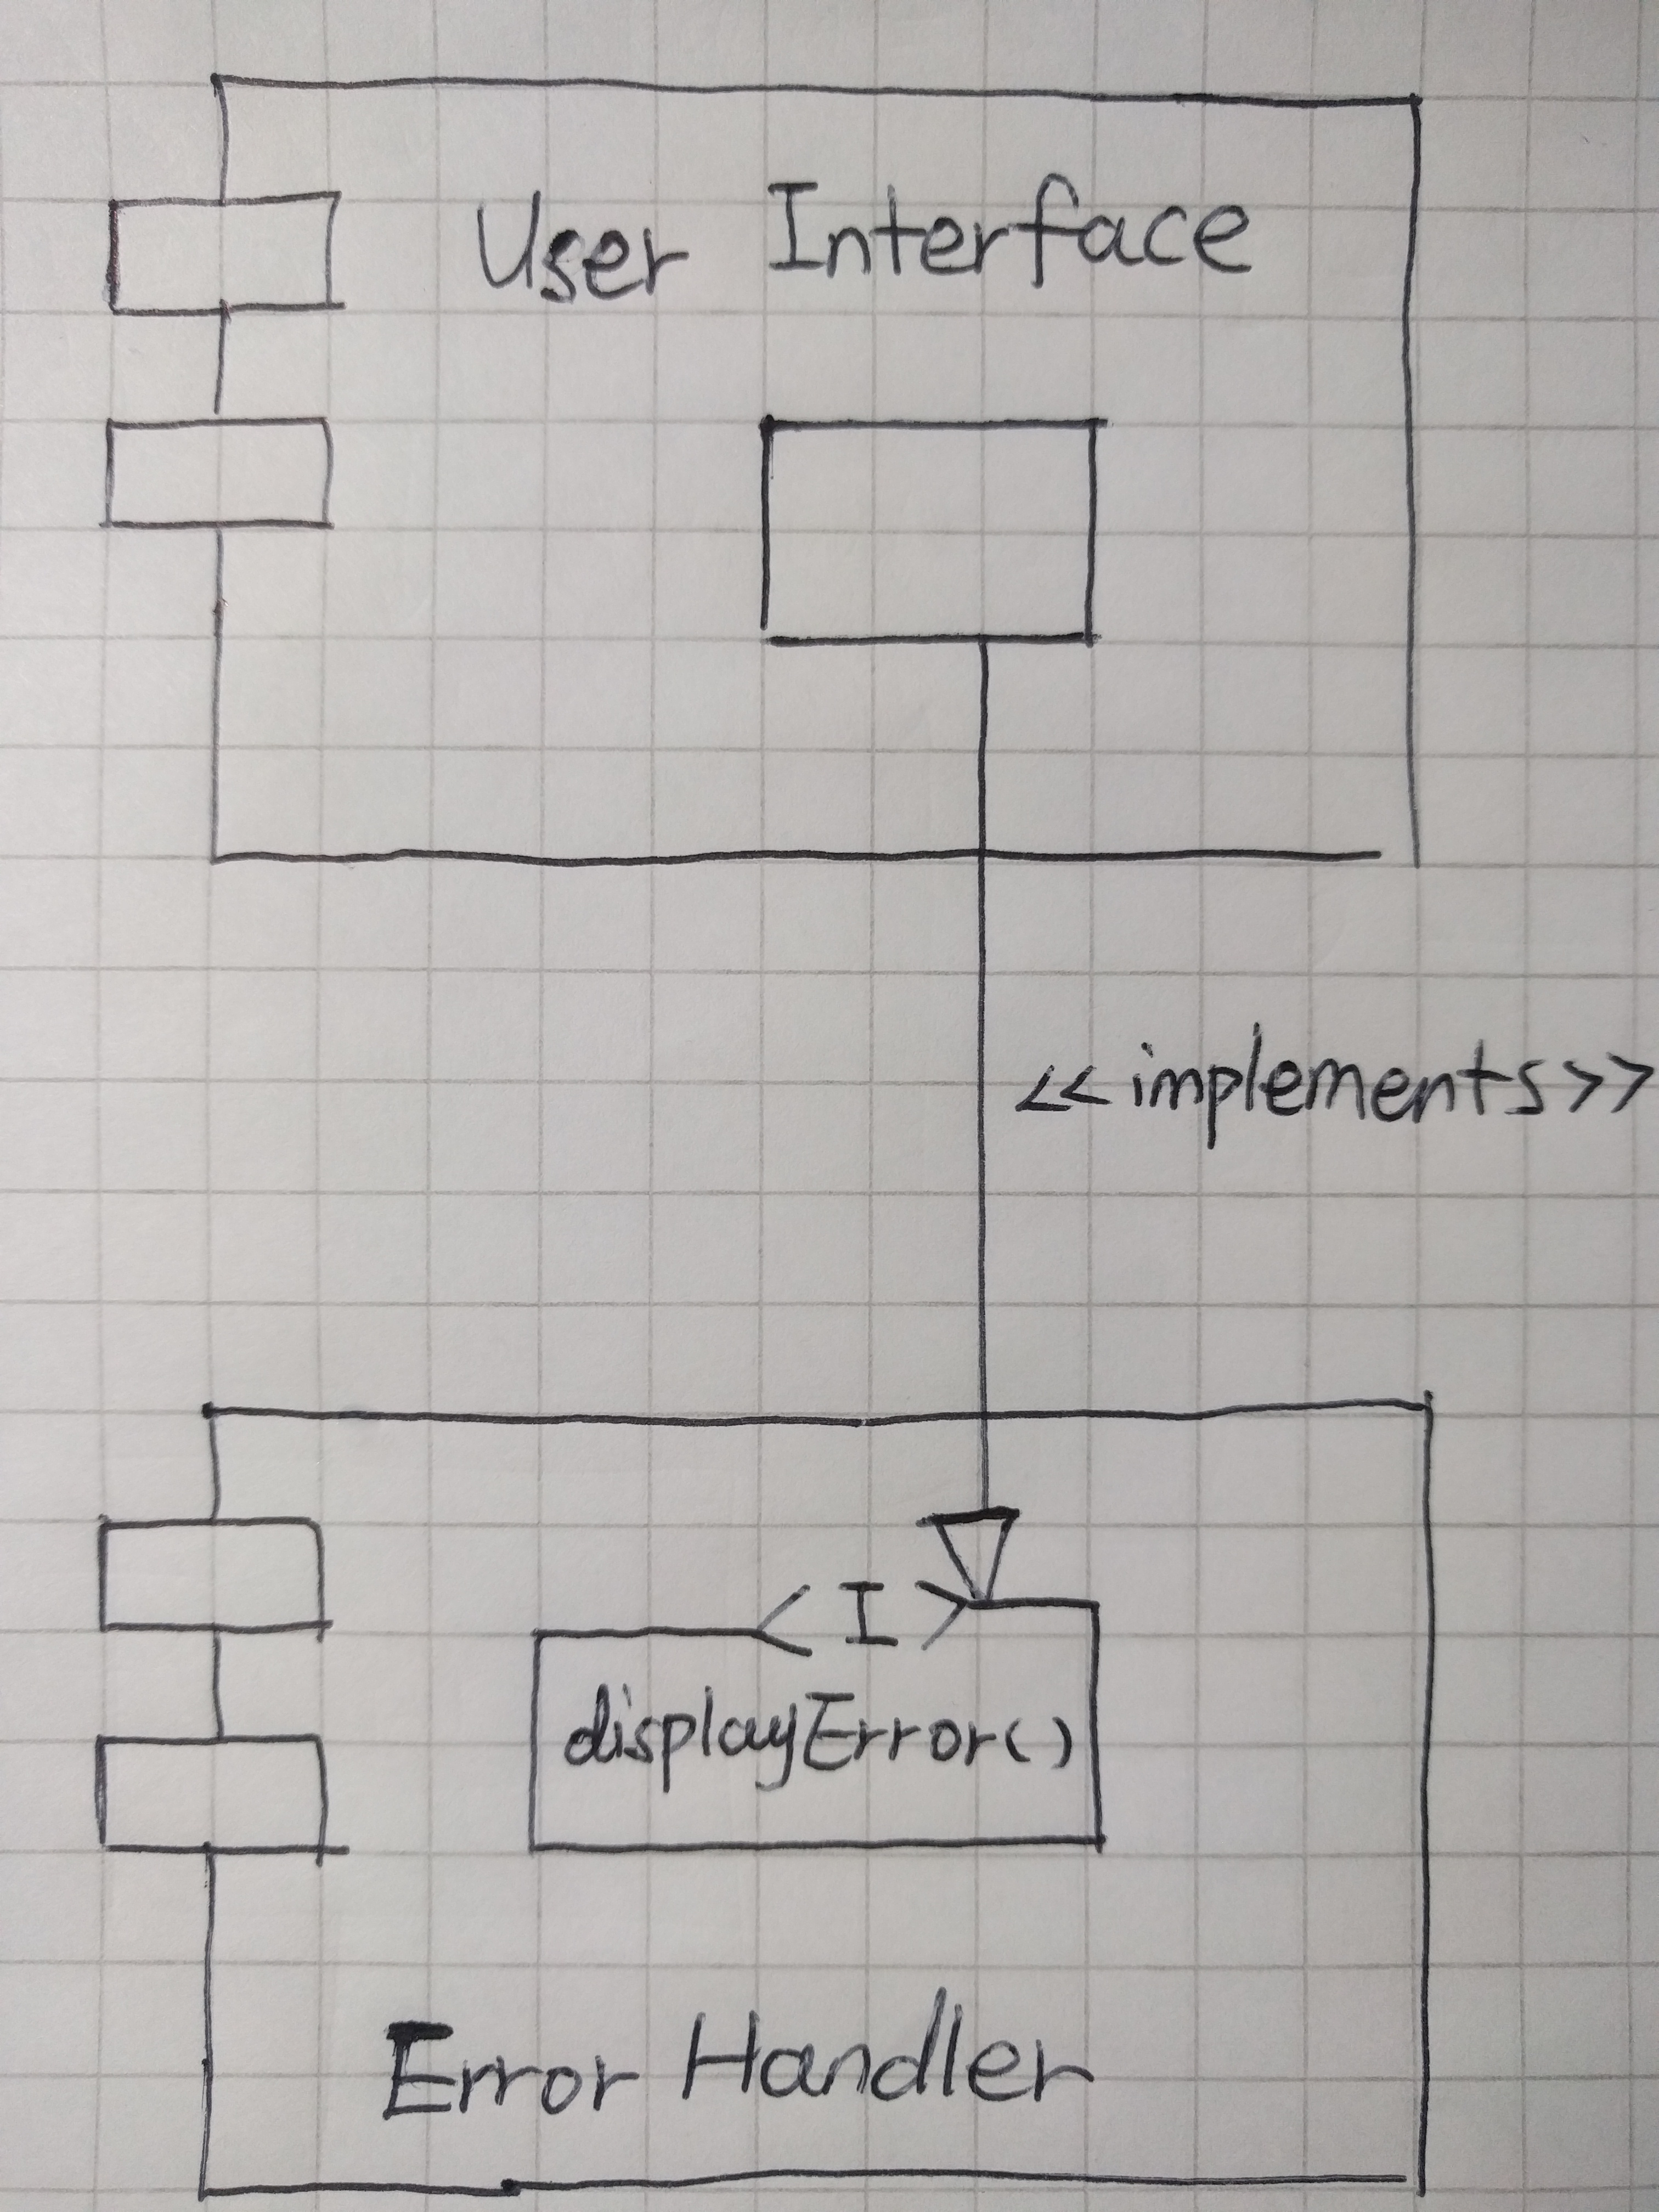 User Interface
<<implements>>
<I>
displayError()
Error Handler